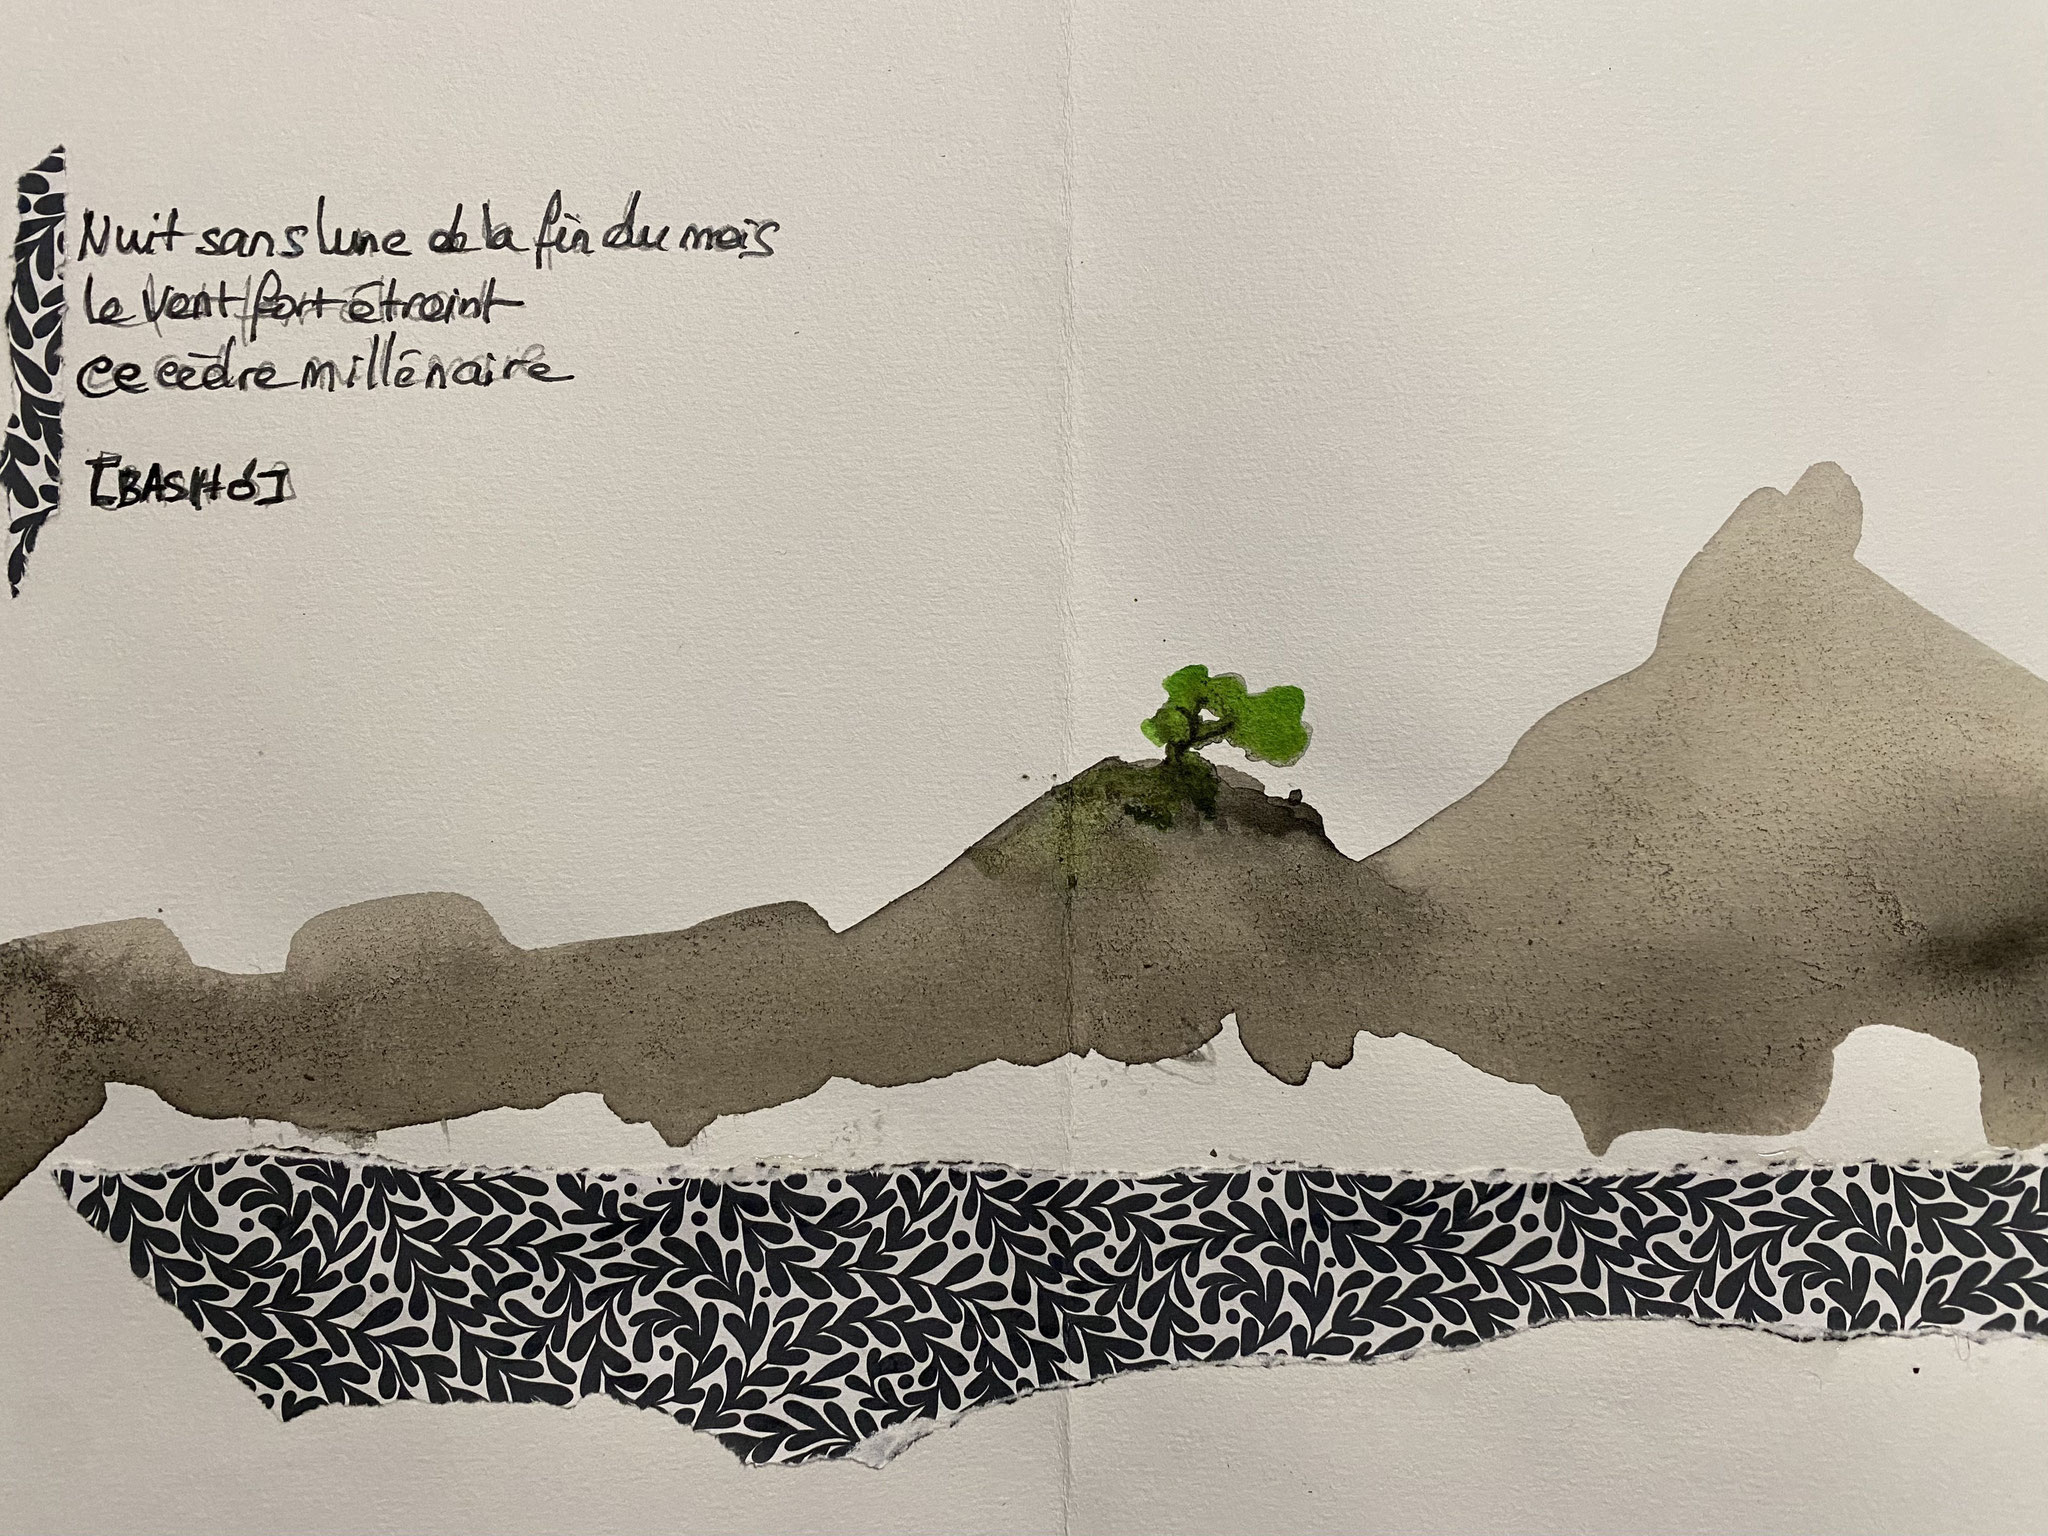 Nuit sans lune de la fin du mois
le vent fort étreint
ce cèdre millénaire
[BASHÔ]